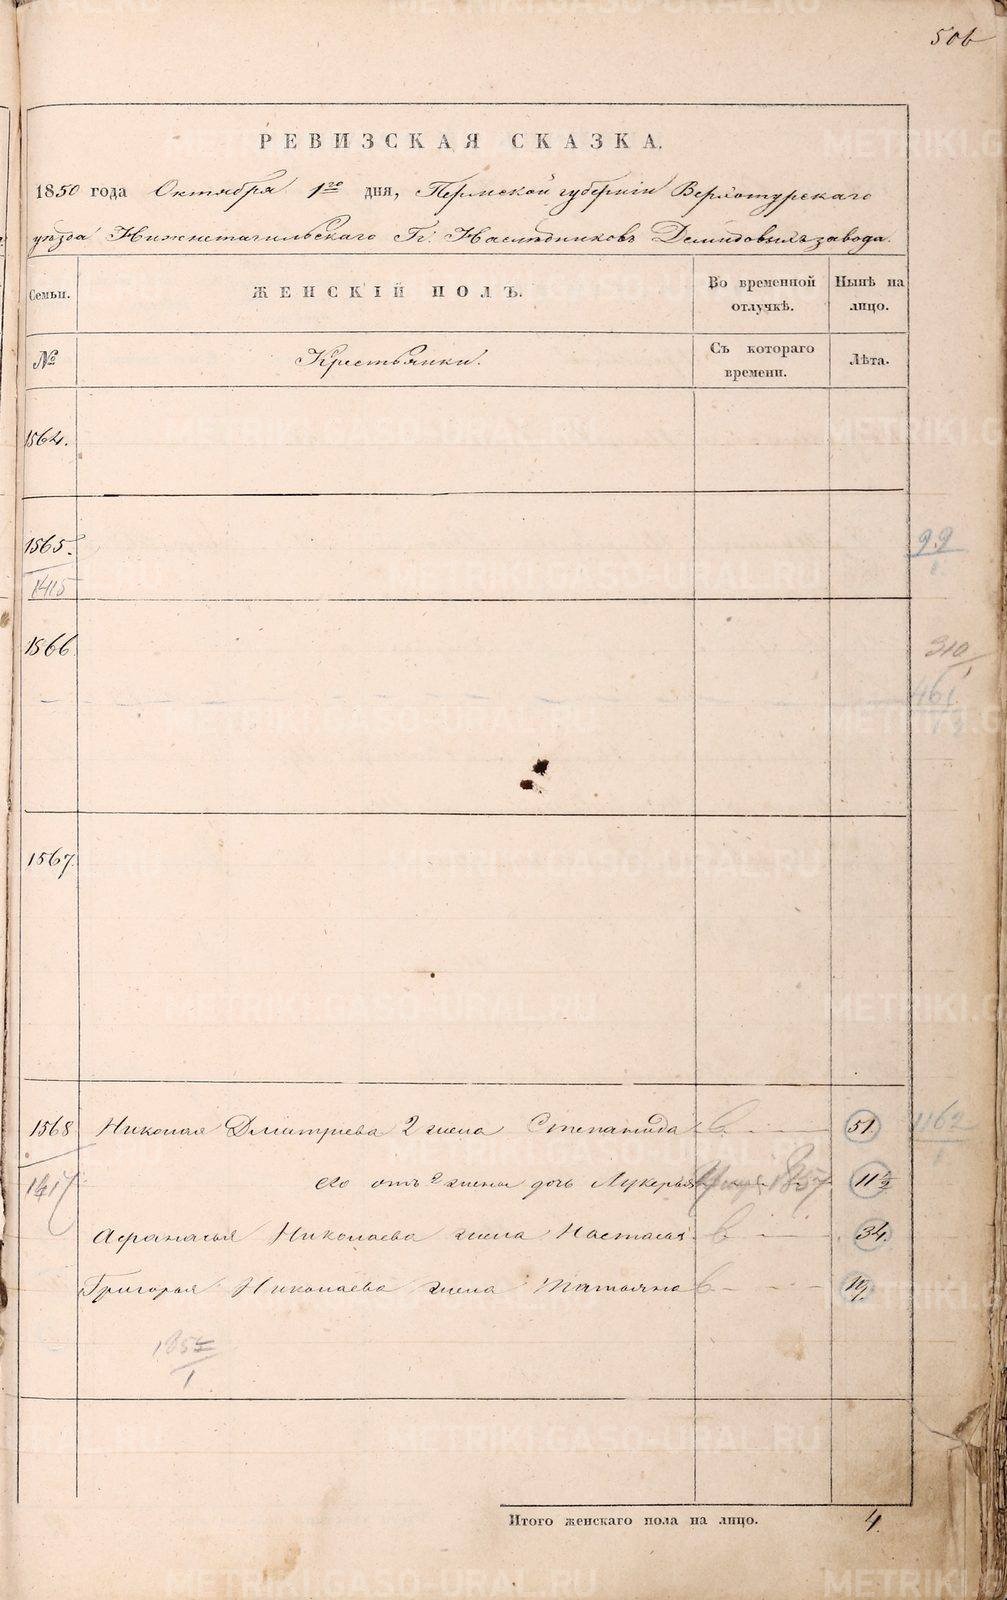 506
РЕВИЗСКАЯ СКАЗКА.
1850 года Октября 1го дня, Пермской губернiи Верхотурскаго
уѣзда Нижнетагильскаго Гг. Наслѣдниковъ Демидовыхъ завода.
Семьи. ЖЕНСКІЙ ПОЛЪ. Во временной отлучкѣ. Нынѣ на лицо.
№ Крестьянки. Съ котораго времени. Лѣта.
1564.
1565. 99/1
1415
1566 310/1
461
1567.
1568 Николая Дмитрiева 2 жена Степанида в 51. 1162/1
1417 его отъ 2 жены дочь Лукерья 1857 11½
Афанасья Николаева жена Настасья в 34
Григорья Николаева жена Татьяна в 19.
Итого женскаго пола на лицо. 4.
METRIKI.GASO-URAL.RU